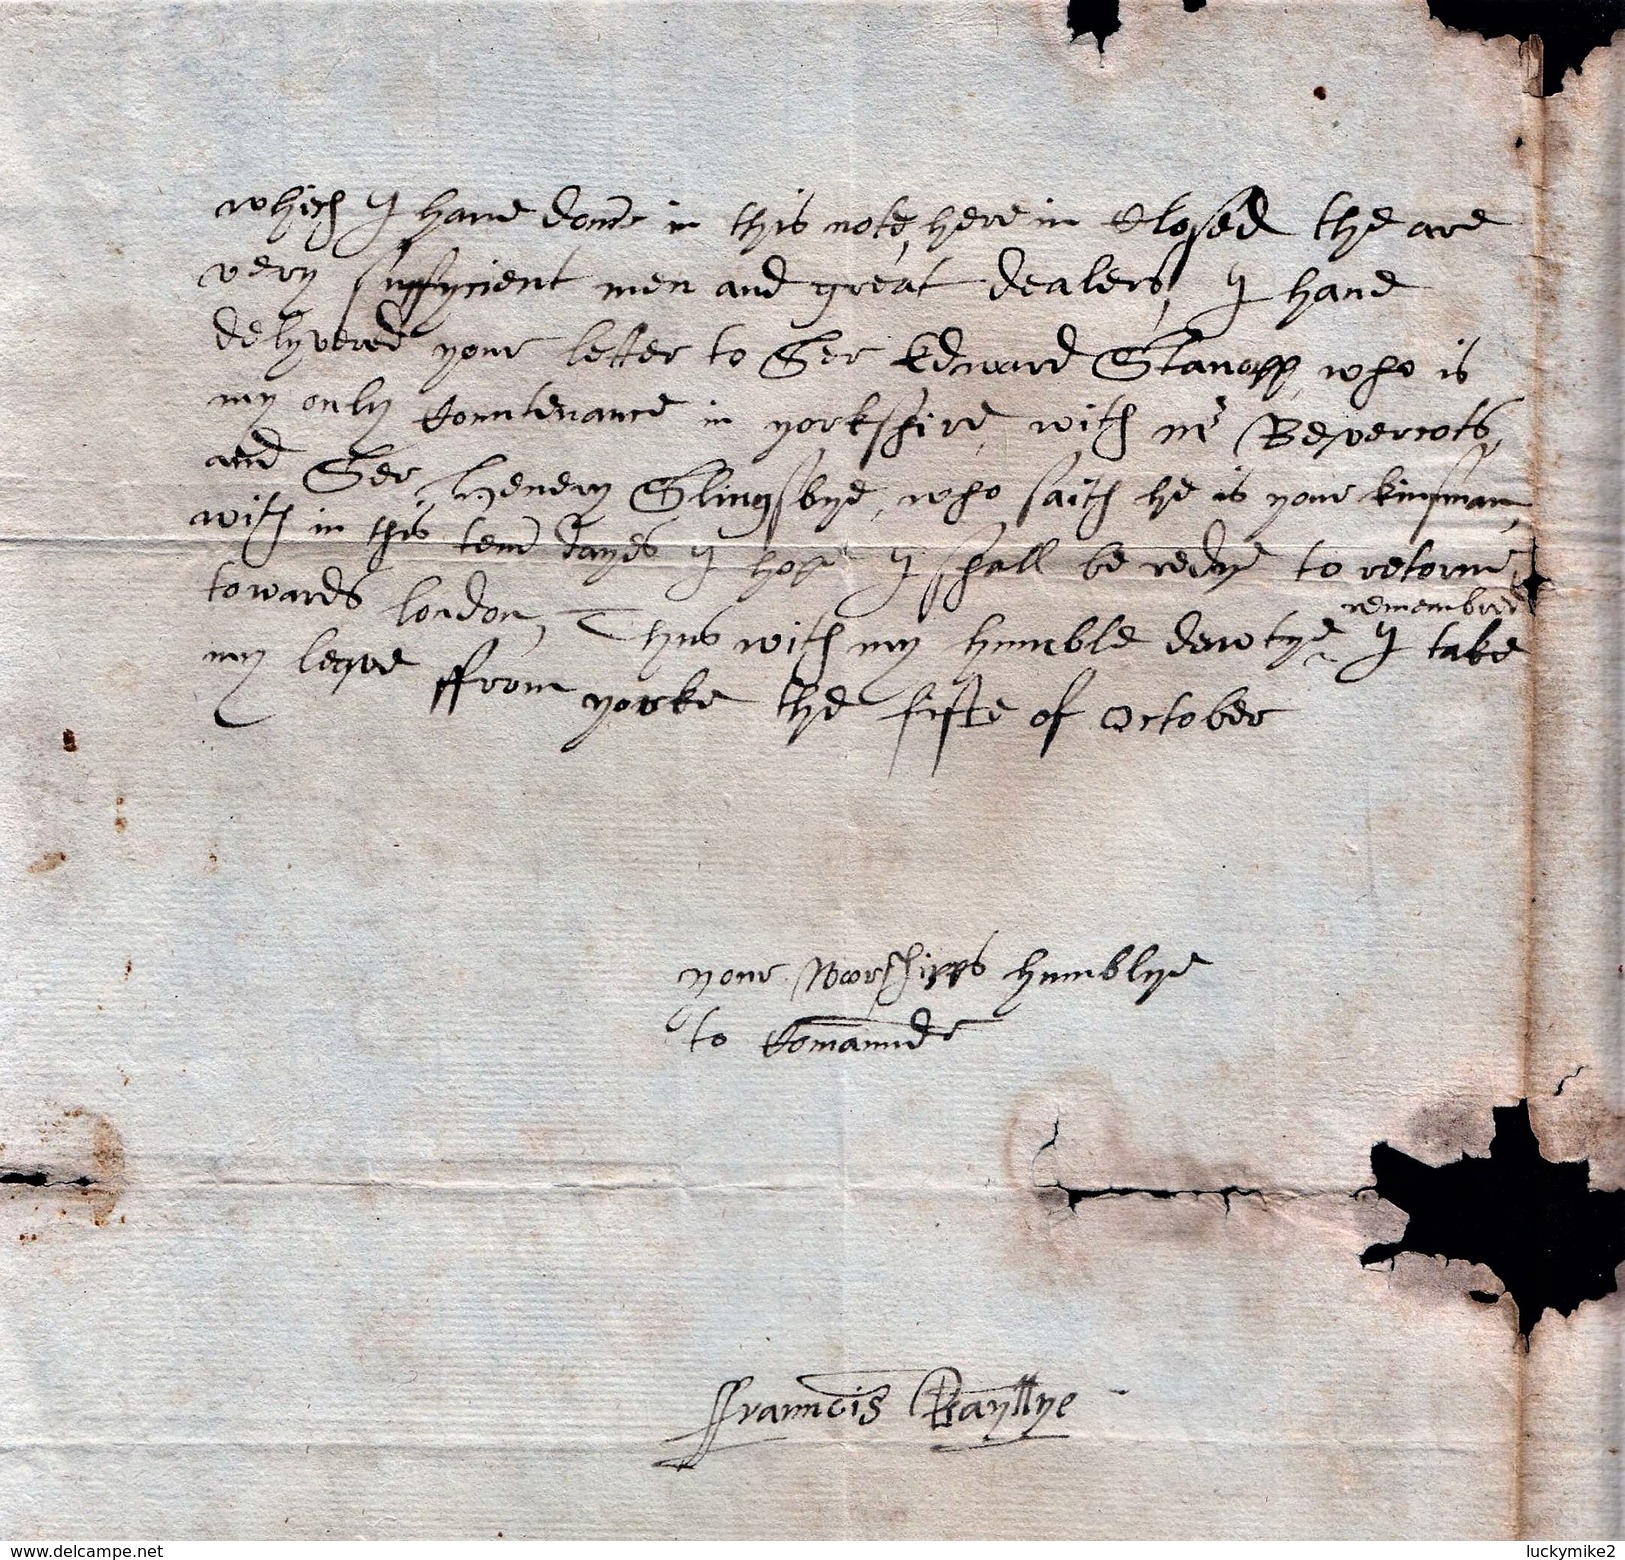 which I have done in this note, here in Closed the are
very suffycient men and great dealers, I have
delyvered your letter to Ser Edward Stanopp, who is
my only Countenance in yorkshire, with mr Bevercots,
and Ser Henery Slingsbye, who saith he is your kinsman,
with in this tenn dayes I hope I shall be redye to retorne,
towards london, Thus with my humble dewtye remembred I take
my leave ffrom yorke the fifte of October
your Woorshipps humblye
to Comaunde
ffranncis Bayllye
www.delcampe.net
luckymike2